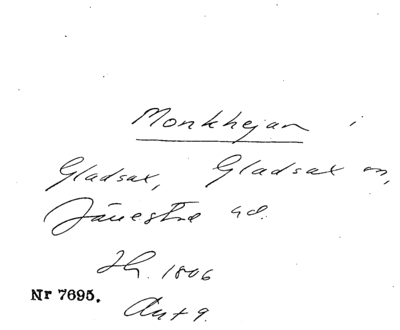 Monkhejan i
Gladsax, Gladsax sn,
Järrestad hd.
Jh. 1806
Nr 7695.
Ant 9.